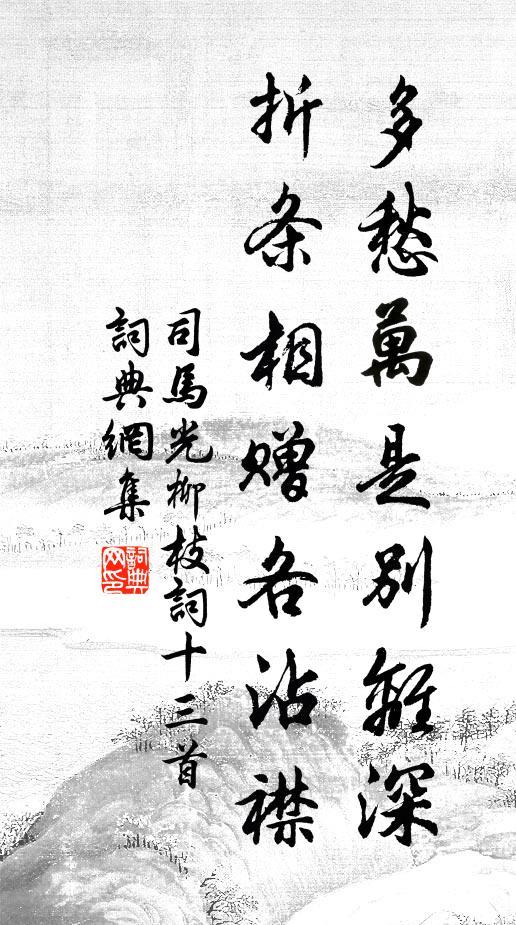 多愁萬是別離深
折条相贈各沾襟
司馬光柳枝詞十三首
詞典網集
詞典網印